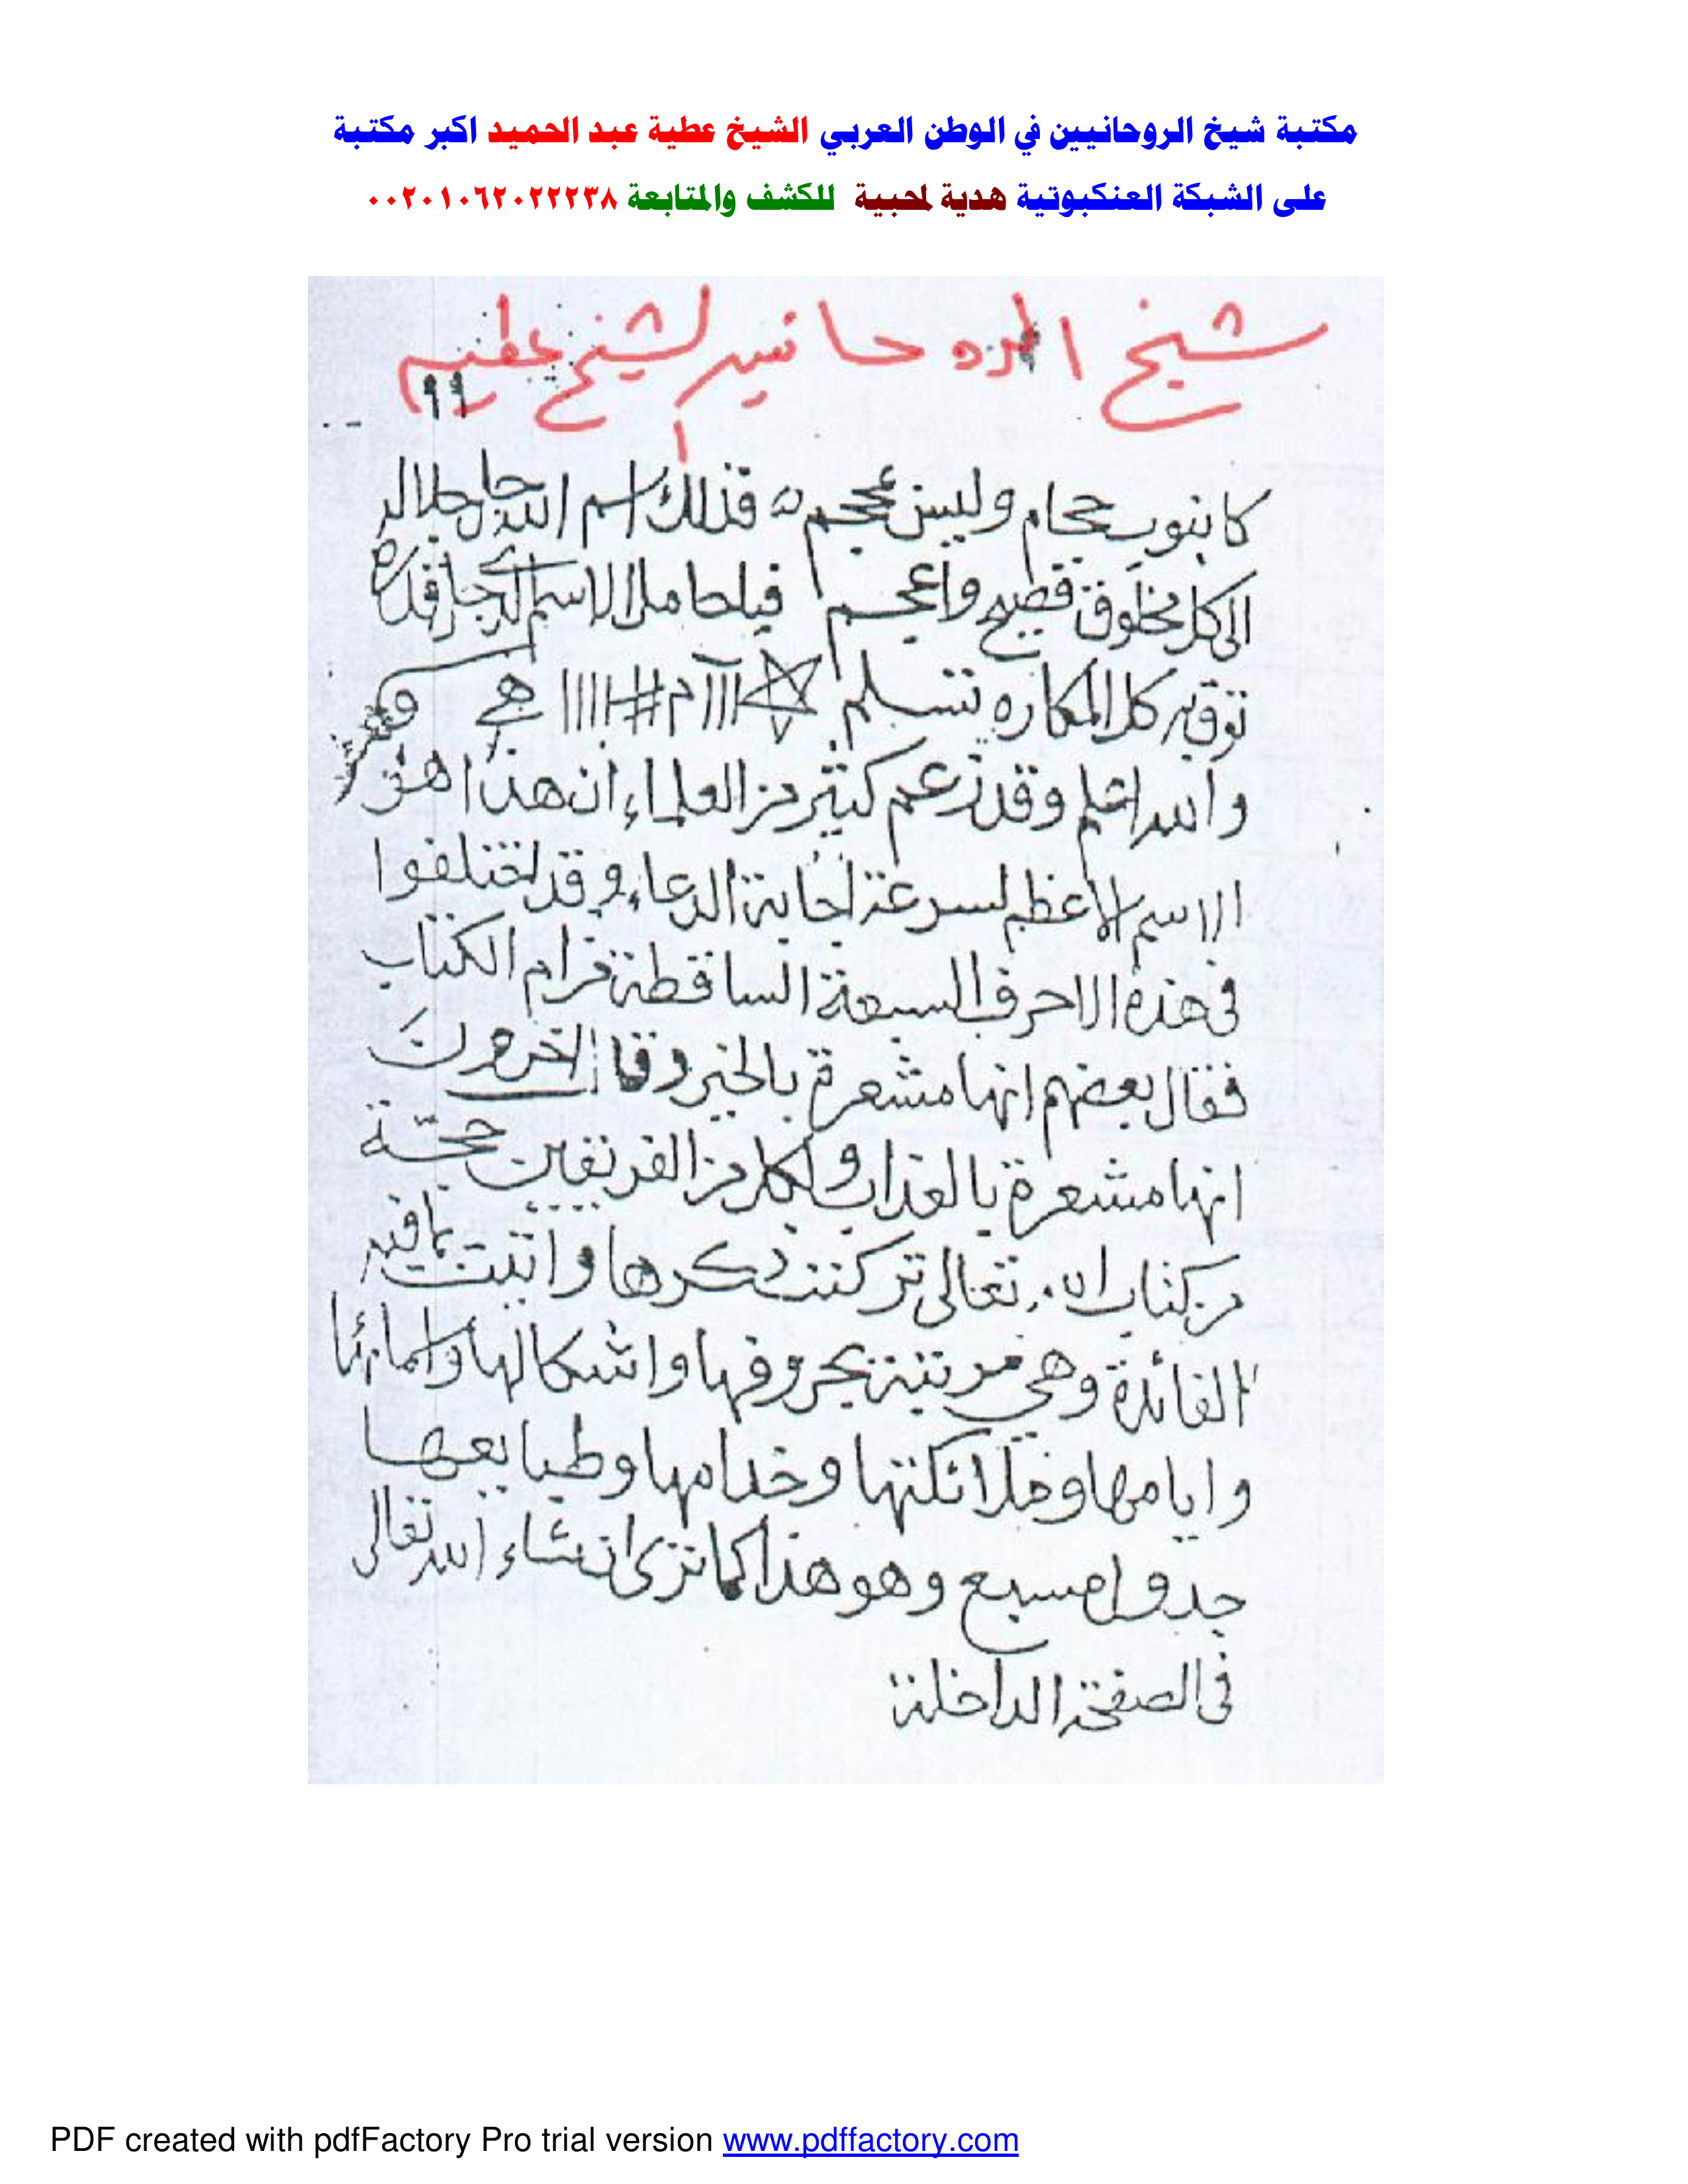 مكتبة شيخ الروحانيين في الوطن العربي الشيخ عطية عبد الحميد اكبر مكتبة
على الشبكة العنكبوتية هدية لمحبية للكشف والمتابعة ٠٠٢٠١٠٦٢٠٢٢٢٣٨
شيخ الروحانيين الشيخ عطيه
١١
حجام وليس فذلك اسم الله جل جلاله
الى كل مخلوق فصيح واعجم فيا حامل الاسم الذي جل قدره
توق به كل المكاره تسلم
والله اعلم وقد زعم كثير من العلماء ان هذا هو
الاسم الاعظم لسرعة اجابة الدعاء وقد اختلفوا
فى هذه الاحرف السبعة الساقطة من ام الكتاب
فقال بعضهم انها مشعرة بالخير وقال اخرون
انها مشعرة بالعذاب ولكل من الفريقين حجة
من كتاب الله تعالى تركت ذكرها واتيت بما فيه
الفائدة وهي مرتبة بحروفها واشكالها واسمائها
وايامها وملائكتها وخدامها وطبايعها
جدول مسبع وهو هذا كما ترى ان شاء الله تعالى
فى الصفحة الداخلة
PDF created with pdfFactory Pro trial version www.pdffactory.com